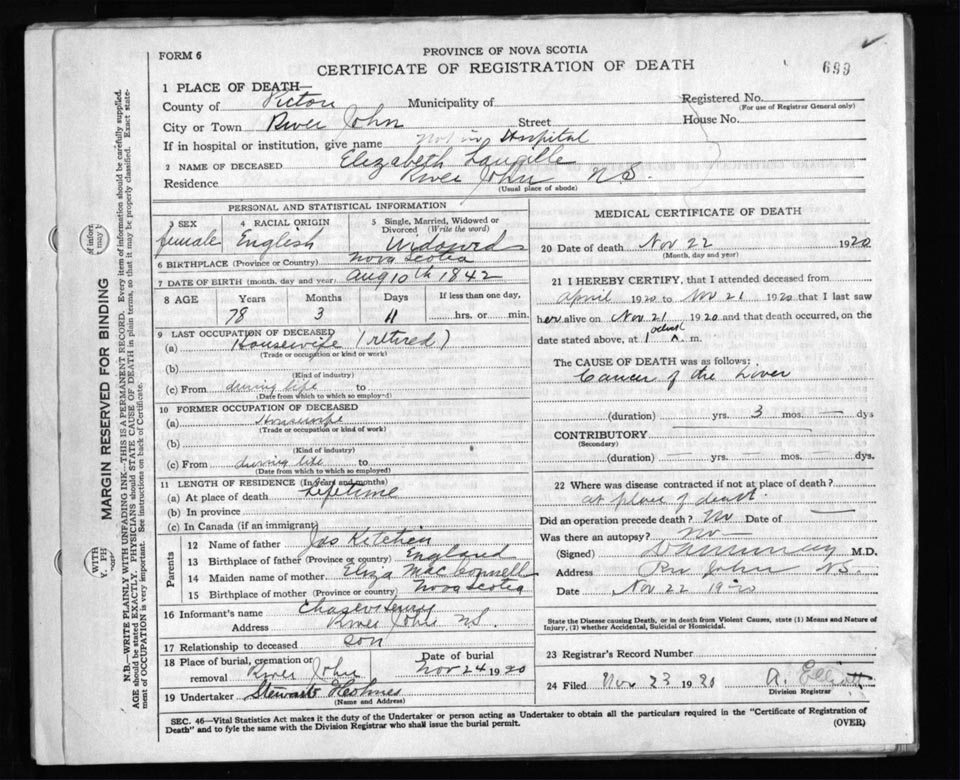 FORM 6
PROVINCE OF NOVA SCOTIA
CERTIFICATE OF REGISTRATION OF DEATH
699
1 PLACE OF DEATH—
County of Pictou Municipality of Registered No.
(For use of Registrar General only)
City or Town River John Street House No.
If in hospital or institution, give name Not in Hospital
2 NAME OF DECEASED Elizabeth Langille
Residence River John N.S.
(Usual place of abode)
PERSONAL AND STATISTICAL INFORMATION
3 SEX 4 RACIAL ORIGIN 5 Single, Married, Widowed or Divorced (Write the word)
female English Widowed
6 BIRTHPLACE (Province or Country) Nova Scotia
7 DATE OF BIRTH (month, day and year) Aug 10th 1842
8 AGE Years Months Days If less than one day,
78 3 11 hrs. or min.
9 LAST OCCUPATION OF DECEASED
(a) Housewife (retired)
(Trade or occupation or kind of work)
(b)
(Kind of industry)
(c) From during life to
(Date from which to which so employed)
10 FORMER OCCUPATION OF DECEASED
(a) Housewife
(Trade or occupation or kind of work)
(b)
(Kind of industry)
(c) From during life to
(Date from which to which so employed)
11 LENGTH OF RESIDENCE (In years and months)
(a) At place of death Lifetime
(b) In province
(c) In Canada (if an immigrant)
Parents
12 Name of father Jas Kitchen
13 Birthplace of father (Province or country) England
14 Maiden name of mother Eliza
15 Birthplace of mother (Province or country) Nova Scotia
16 Informant's name
Address River John N.S.
17 Relationship to deceased son
18 Place of burial, cremation or removal River John Date of burial Nov 24 1920
19 Undertaker Stewart
(Name and Address)
MEDICAL CERTIFICATE OF DEATH
20 Date of death Nov 22 1920
(Month, day and year)
21 I HEREBY CERTIFY, that I attended deceased from
April 1920 to Nov 21 1920 that I last saw
her alive on Nov 21 1920 and that death occurred, on the
date stated above, at 1 m.
The CAUSE OF DEATH was as follows:
Cancer of the Liver
(duration) yrs. 3 mos. — dys
CONTRIBUTORY
(Secondary)
(duration) — yrs. — mos. — dys.
22 Where was disease contracted if not at place of death?
at place of death.
Did an operation precede death? No Date of —
Was there an autopsy? no
(Signed) M.D.
Address Riv John NS.
Date Nov 22 1920
State the Disease causing Death, or in death from Violent Causes, state (1) Means and Nature of
Injury, (2) whether Accidental, Suicidal or Homicidal.
23 Registrar's Record Number
24 Filed Nov 23 1920 A. Elliott
Division Registrar
SEC. 46—Vital Statistics Act makes it the duty of the Undertaker or person acting as Undertaker to obtain all the particulars required in the "Certificate of Registration of
Death" and to fyle the same with the Division Registrar who shall issue the burial permit.
(OVER)
MARGIN RESERVED FOR BINDING
N.B.—WRITE PLAINLY WITH UNFADING INK—THIS IS A PERMANENT RECORD. Every item of information should be carefully supplied.
AGE should be stated EXACTLY. PHYSICIANS should STATE CAUSE OF DEATH in plain terms, so that it may be properly classified. Exact state-
ment of OCCUPATION is very important. See instructions on back of Certificate.